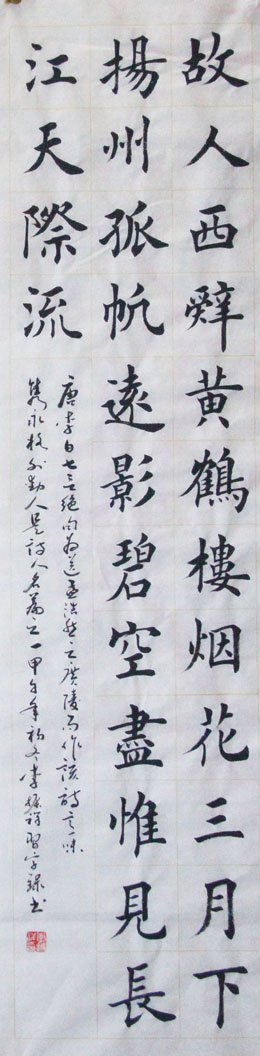 故人西辭黃鶴樓烟花三月下
揚州孤帆遠影碧空盡惟見長
江天際流
唐李白七言絕句為送孟浩然之廣陵而作該詩意味
隽永格外動人是詩人名篇之一甲午年初冬李振祥習字錄书